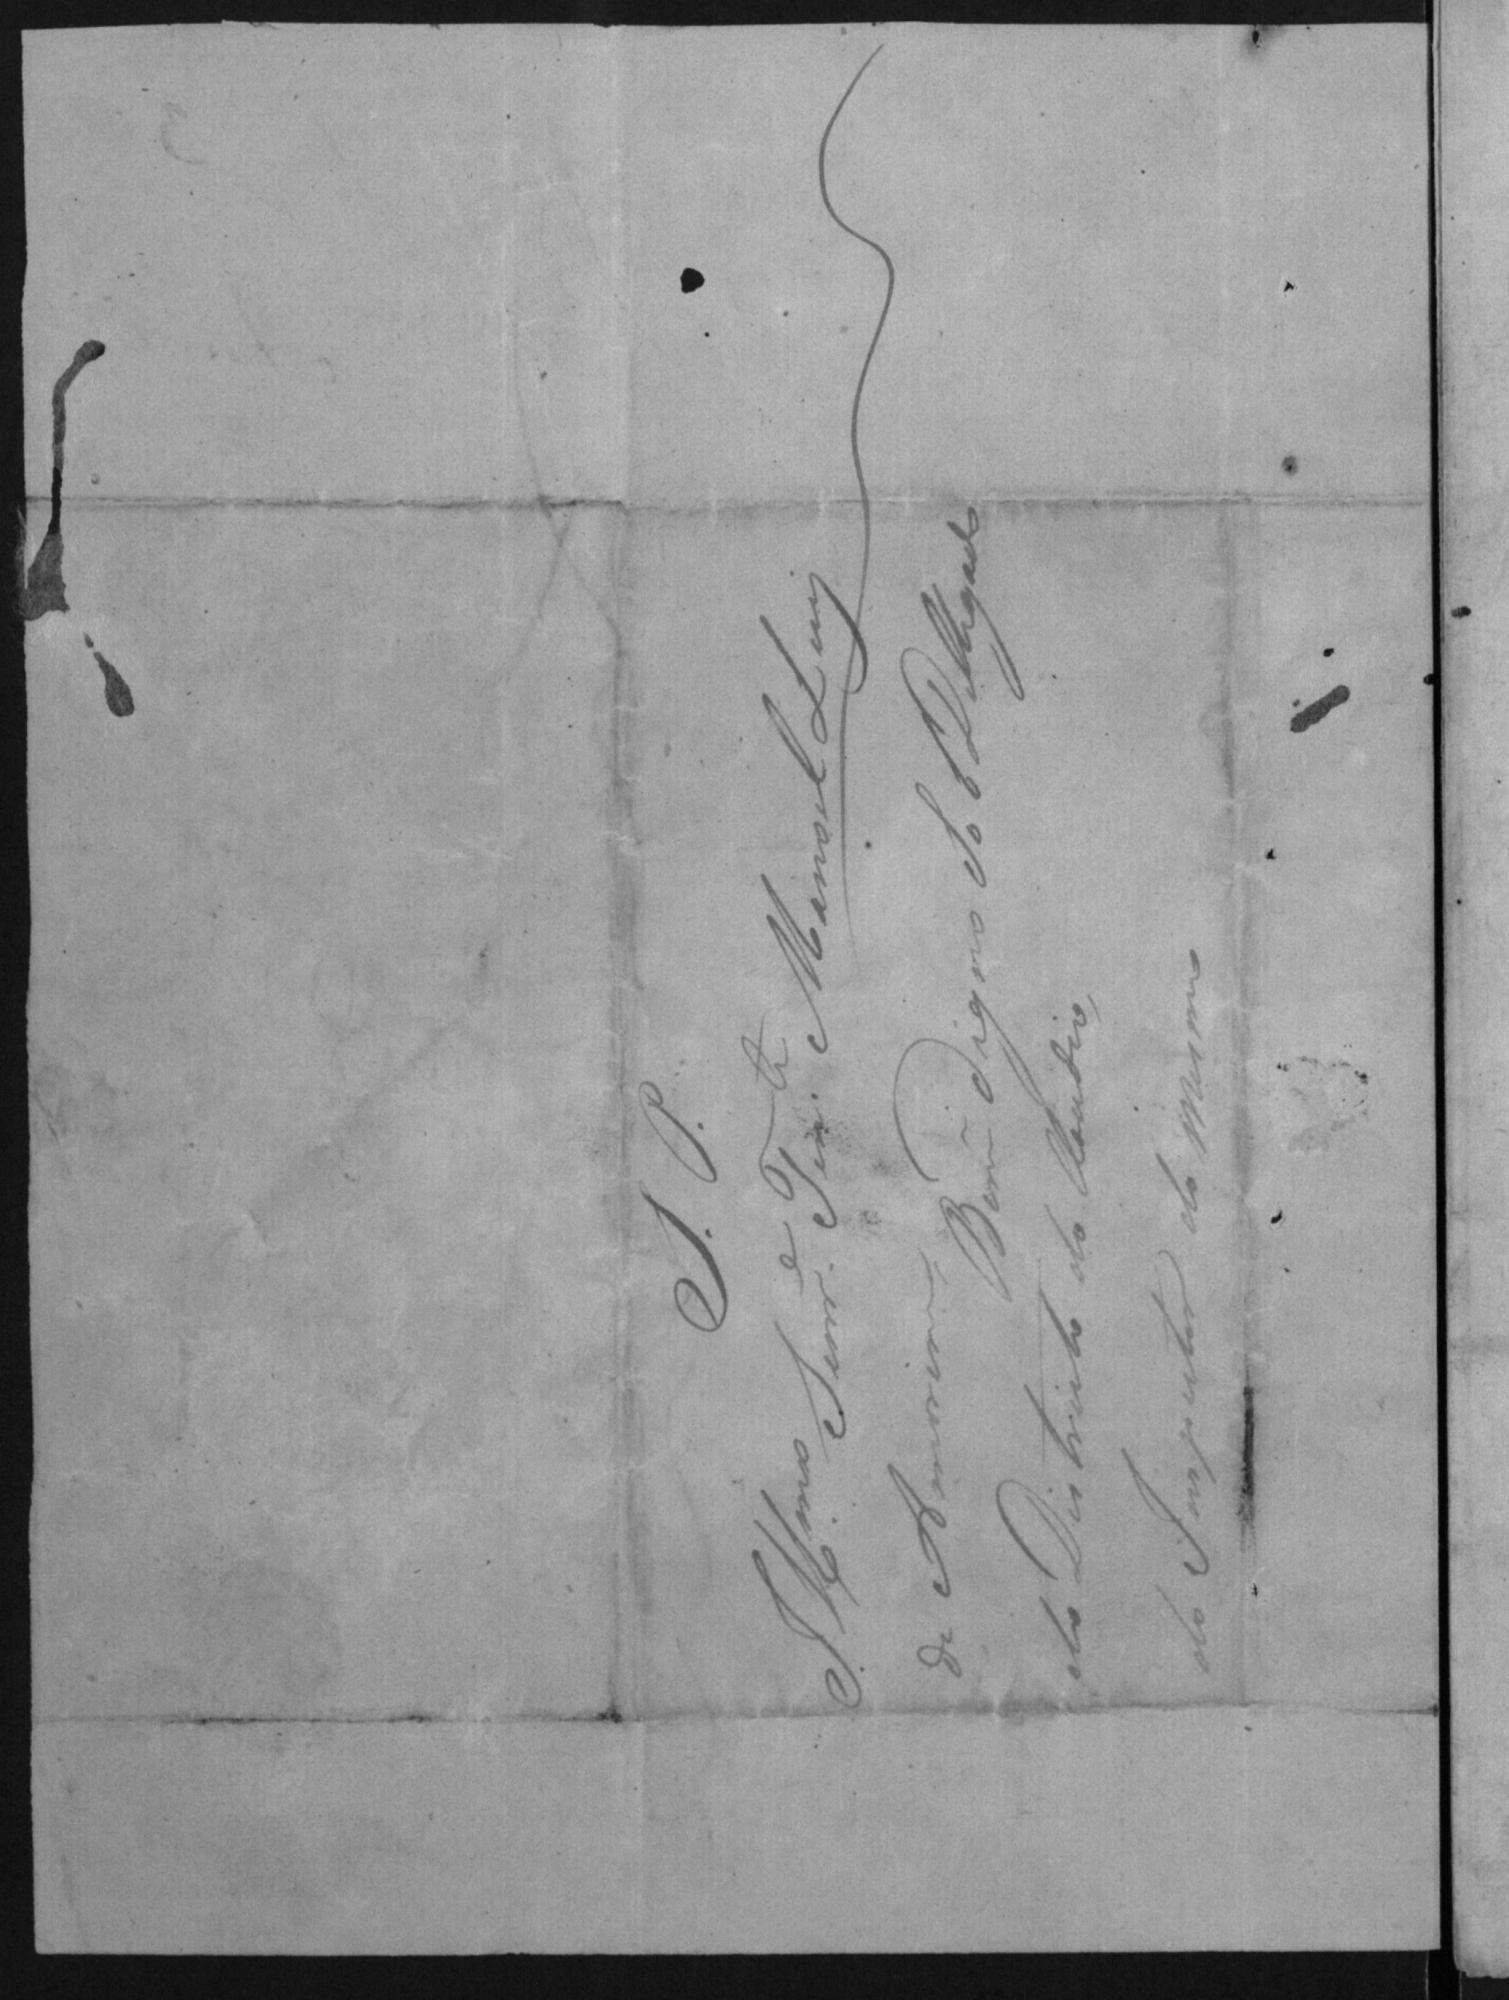 S. P.
Illmo. Senr. e Ten.te Manoel Luiz
de Amorim,
Bem digno S. Dellegado
do Distrito do Claudio,
do Inspector do Mesmo